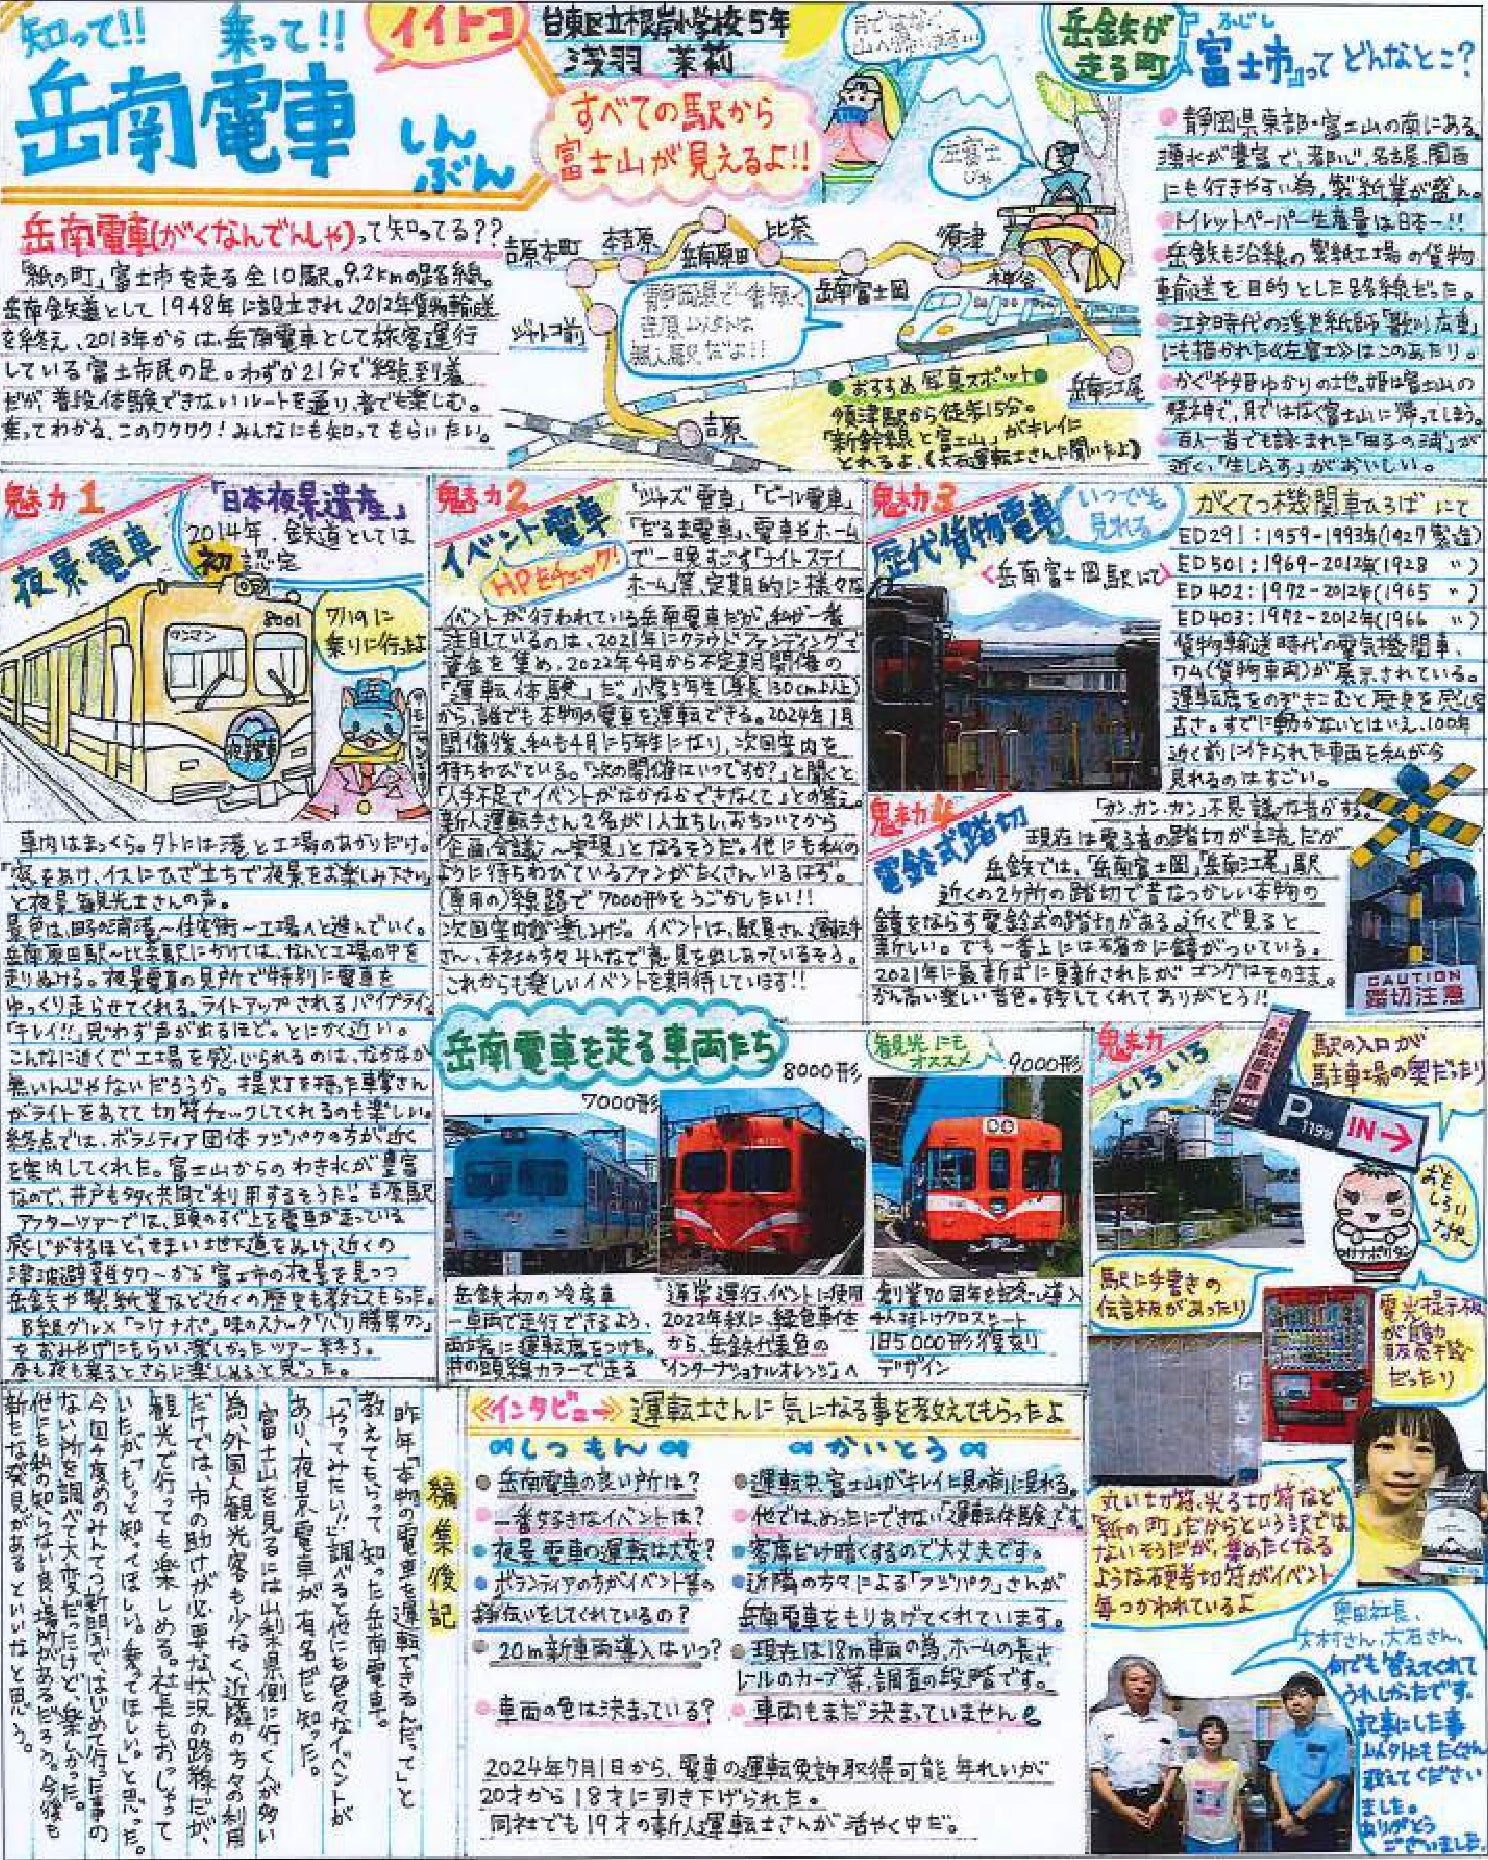 知って!! 乗って!!
イイトコ
岳南電車
しんぶん
台東区立根岸小学校5年
浅羽 茉莉
すべての駅から
富士山が見えるよ!!
月ではなく
山へ帰ります…
左富士
じゃ
岳鉄が
走る町
『富士市』って どんなとこ?
ふじし
● 静岡県東部・富士山の南にある。
湧水が豊富で、都心、名古屋、関西
にも行きやすい為、製紙業が盛ん。
● トイレットペーパー生産量は日本一!!
● 岳鉄も沿線の製紙工場の貨物
輸送を目的とした路線だった。
● 江戸時代の浮世絵師「歌川広重」
にも描かれた《左富士》はこのあたり。
● かぐや姫ゆかりの地。姫は富士山の
祭神で、月ではなく富士山に帰ってしまう。
● 百人一首でも詠まれた「田子の浦」が
近く、「生しらす」がおいしい。
岳南電車(がくなんでんしゃ)って知ってる??
「紙の町」富士市を走る全10駅。9.2kmの路線。
岳南鉄道として1948年に設立され、2012年貨物輸送
を終え、2013年からは、岳南電車として旅客運行
している富士市民の足。わずか21分で終点到着
だが、普段体験できないルートを通り、音でも楽しむ。
乗ってわかる、このワクワク!みんなにも知ってもらいたい。
吉原
ジヤトコ前
吉原本町
本吉原
岳南原田
比奈
岳南富士岡
須津
神谷
岳南江尾
静岡県で一番短く
吉原以外は
無人駅だよ!!
● おすすめ写真スポット●
須津駅から徒歩15分。
「新幹線と富士山」がキレイに
とれるよ。(大石運転士さんに聞いたよ)
魅力1
夜景電車
「日本夜景遺産」
2014年、鉄道としては
初 認定
ワンマン
8001
夜景電車
7/19に
乗りに行ったよ
車内はまっくら。外には港と工場のあかりだけ。
「窓をあけ、イスにひざ立ちで夜景をお楽しみ下さい」
と夜景観光士さんの声。
景色は、田子の浦港〜住宅街〜工場へと進んでいく。
岳南原田駅〜比奈駅にかけては、なんと工場の中を
走りぬける。夜景電車の見所で特別に電車を
ゆっくり走らせてくれる。ライトアップされるパイプライン
「キレイ!!」思わず声が出るほど。とにかく近い。
こんなに近くで工場を感じられるのは、なかなか
無いんじゃないだろうか。提灯を持った車掌さん
がライトをあてて切符チェックしてくれるのも楽しい。
終点では、ボランティア団体フジパクの方が近く
を案内してくれた。富士山からのわき水が豊富
なので、井戸も多く共同で利用するそうだ。吉原駅
アフターツアーでは、頭のすぐ上を電車が走っている
感じがするほど、せまい地下道をぬけ、近くの
津波避難タワーから富士市の夜景を見つつ
岳鉄や製紙業など近くの歴史も教えてもらった。
B級グルメ「つけナポ」味のスナック「バリ勝男クン」
をおみやげにもらい、楽しかったツアー終了。
昼も夜も乗るとさらに楽しめると思った。
魅力2
イベント電車
HPをチェック!
「ジャズ電車」「ビール電車」
「だるま電車」、電車やホーム
で一晩すごす「ナイトステイ
ホーム」等、定期的に様々な
イベントが行われている岳南電車だが、私が一番
注目しているのは、2021年にクラウドファンディングで
資金を集め、2022年4月から不定期開催の
「運転体験」だ。小学5年生(身長130cm以上)
から、誰でも本物の電車を運転できる。2024年1月
開催後、私も4月に5年生になり、次回案内を
待ちわびている。「次の開催はいつですか?」と聞くと、
「人手不足でイベントがなかなかできなくて」との答え。
新人運転手さん2名が1人立ちし、おちついてから
「企画会議〜実現」となるそうだ。他にも私の
ように待ちわびているファンがたくさんいるはず。
(専用の)線路で7000形をうごかしたい!!
次回案内が楽しみだ。イベントは、駅員さん、運転手
さん、本社の方々みんなで意見を出しあっているそう。
これからも楽しいイベントを期待しています!!
魅力3
歴代貨物電車
いつでも
見れる
<岳南富士岡駅にて>
がくてつ機関車ひろばにて
ED291:1959-1993年(1927製造)
ED501:1969-2012年(1928 〃)
ED402:1972-2012年(1965 〃)
ED403:1972-2012年(1966 〃)
貨物輸送時代の電気機関車、
ワム(貨物車両)が展示されている。
運転席をのぞきこむと歴史を感じる
古さ。すでに動かないとはいえ、100年
近く前に作られた車両を私が今
見れるのはすごい。
魅力4
電鈴式踏切
「カン、カン、カン」不思議な音がする。
現在は電子音の踏切が主流だが
岳鉄では、「岳南富士岡」「岳南江尾」駅
近くの2ヶ所の踏切で昔なつかしい本物の
鐘をならす電鈴式の踏切がある。近くで見ると
新しい。でも一番上には確かに鐘がついている。
2021年に最新式に更新されたがゴングはそのまま。
かん高い楽しい音色。残してくれてありがとう!!
CAUTION
踏切注意
岳南電車を走る車両たち
7000形
8000形
9000形
観光にも
オススメ
岳鉄初の冷房車
一車両で走行できるよう、
両端に運転席をつけた。
井の頭線カラーで走る
通常運行、イベントに使用
2022年秋に、緑色車体
から、岳鉄代表色の
「インターナショナルオレンジ」へ
創業70周年を記念し導入
4人掛けクロスシート
旧5000形復刻
デザイン
魅力
いろいろ
駅の入口が
駐車場の奥だったり
P
119台
IN→
おもしろい
ナポ
つけナポリタン
駅に手書きの
伝言板があったり
電光掲示板
が自動
販売機
だったり
丸い切符、光る切符など
「紙の町」だからという訳では
ないそうだが、集めたくなる
ような硬券切符がイベント
毎つかわれているよ
奥田社長、
大木さん、大石さん、
何でも答えてくれて
うれしかったです。
記事にした事
以外にもたくさん
教えてください
ました。
ありがとう
ございました。
《インタビュー》運転士さんに気になる事を教えてもらったよ
しつもん
かいとう
● 岳南電車の良い所は?
● 運転中、富士山がキレイに目の前に見れる。
● 一番好きなイベントは?
● 他では、めったにできない「運転体験」です
● 夜景電車の運転は大変?
● 客席だけ暗くするので大丈夫です。
● ボランティアの方がイベント等の
お手伝いをしてくれているの?
● 近隣の方々による「フジパク」さんが
岳南電車をもりあげてくれています。
● 20m新車両導入はいつ?
● 現在は18m車両の為、ホームの長さ
レールのカーブ等、調査の段階です。
● 車両の色は決まっている?
● 車両もまだ決まっていません
2024年7月1日から、電車の運転免許取得可能年れいが
20才から18才に引き下げられた。
同社でも19才の新人運転士さんが活やく中だ。
編集後記
昨年「本物の電車を運転できるんだって」と
教えてもらって知った岳南電車。
「やってみたい!!」調べると他にも色々なイベントが
あり、夜景電車が有名だと知った。
富士山を見るには山梨県側に行く人が多い
為、外国人観光客も少なく、近隣の方々の利用
だけでは、市の助けが必要な状況の路線だが、
観光で行っても楽しめる。社長もおっしゃって
いたが「もっと知ってほしい。乗ってほしい」と思った。
今回4度めのみんてつ新聞で、はじめて行った事の
ない所を調べて大変だったけど、楽しかった。
他にも私の知らない良い場所があるだろう。今後も
新たな発見があるといいなと思う。